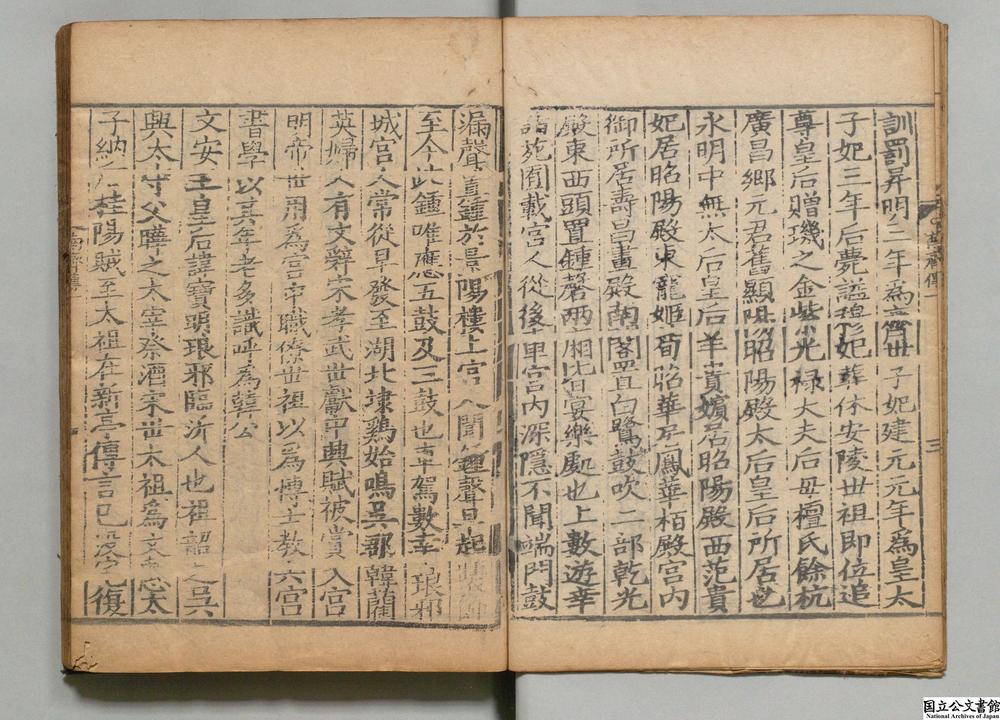 訓罰昇明三年為齊世子妃建元元年為皇太
子妃三年后薨諡穆妃葬休安陵世祖即位追
尊皇后贈璣之金紫光祿大夫后母檀氏餘杭
廣昌鄉元君舊顯陽昭陽殿太后皇后所居也
永明中無太后皇后羊貴嬪居昭陽殿西范貴
妃居昭陽殿東寵姬荀昭華居鳳華栢殿宮内
御所居壽昌畫殿南閣置白鷺鼓吹二部乾光
殿東西頭置鍾磬兩廂皆宴樂處也上數遊幸
諸苑囿載宮人從後車宮内深隱不聞端門鼓
漏聲置鍾於景陽樓上宮人聞鍾聲早起裝飾
至今此鍾唯應五鼓及三鼓也車駕數幸琅邪
城宮人常從早發至湖北埭鷄始鳴吳郡韓藺
英婦人有文辭宋孝武世獻中興賦被賞入宮
明帝世用為宮中職僚世祖以為博士教六宮
書學以其年老多識呼為韓公
文安王皇后諱寶明琅邪臨沂人也祖韶之吳
興太守父曄之太宰祭酒宋世太祖為文惠太
子納后桂陽賊至太祖在新亭傳言已没宅復
三
国立公文書館
National Archives of Japan